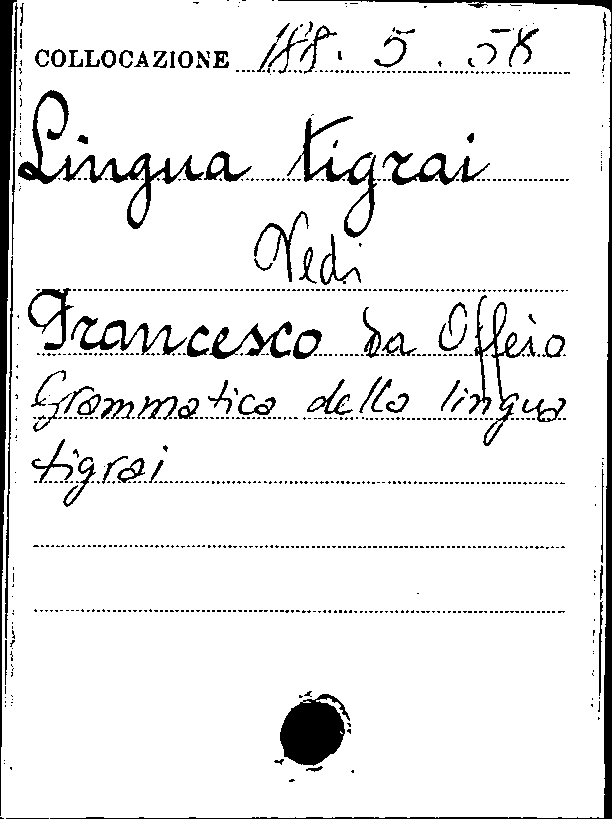 COLLOCAZIONE 188. 5. 58
Lingua tigrai
Vedi
Francesco da Offeio
Grammatica della lingua
tigrai